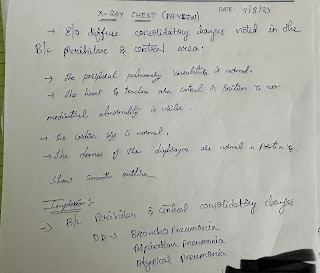 X-RAY CHEST (PA VIEW) DATE: 9/8/23
→ E/o diffuse consolidatory changes noted in the
B/L perihilar & central area.
→ The peripheral pulmonary vasculature is normal.
→ The heart & trachea are central in position & no
mediastinal abnormality is visible.
→ The cardiac size is normal.
→ The domes of the diaphragm are normal in position &
show smooth outline
Impression :
→ B/L Perihilar & central consolidatory changes
DD → Broncho Pneumonia
Aspiration pneumonia
Atypical pneumonia